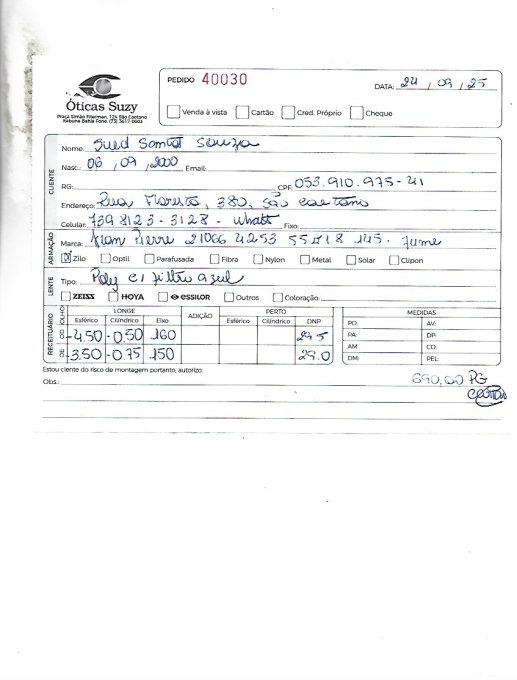 PEDIDO 40030
DATA: 24 / 09 / 25
Óticas Suzy
Praça Simão Fiterman, 124 São Caetano
Itabuna Bahia Fone: (73) 3617-0603
Venda à vista Cartão Cred. Próprio Cheque
CLIENTE
Nome: Santos Souza
Nasc.: 06 / 09 / 2000 Email:
RG: CPF: 053.910.975-41
Endereço: Rua 380, São Caetano
Celular: 739 8123-3128 - Whats Fixo:
ARMAÇÃO
Marca: Jean Pierre 21066 4253 55 18 145. fume
Zilo Optil Parafusada Fibra Nylon Metal Solar Clipon
LENTE
Tipo: Poly c/ filtro azul
ZEISS HOYA essilor Outros Coloração:
RECEITUÁRIO
OLHO LONGE ADIÇÃO PERTO MEDIDAS
Esférico Cilíndrico Eixo Esférico Cilíndrico DNP
OD -4.50 -0.50 160 29.5
OE -3.50 -0.75 150 29.0
PO: AV:
PA: DP:
AM CO:
DM: PEL:
Estou ciente do risco de montagem portanto, autorizo.
Obs.: 690,00 PG